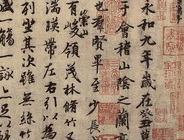 永和九年歲在癸
于會稽山陰之蘭亭
也群賢畢至少長
有崇山峻領茂林脩竹
湍暎帶左右引以
列坐其次雖無絲竹
盛一觴一詠亦足以